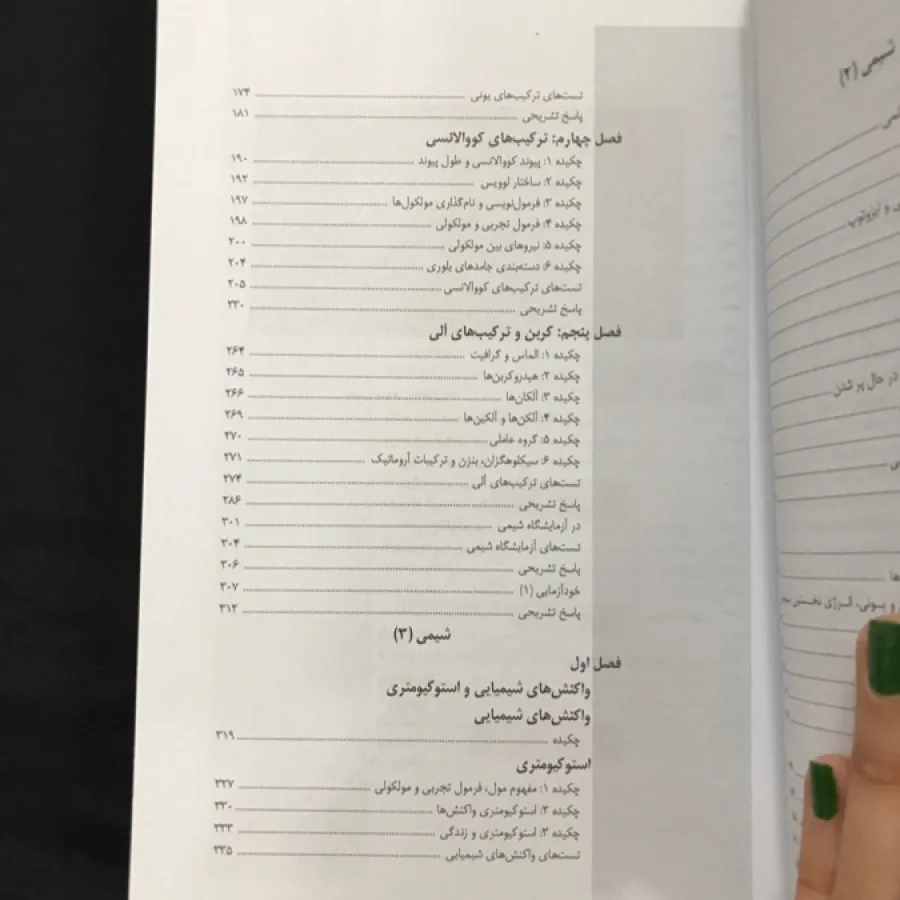 تست‌های ترکیب‌های یونی ........ ۱۷۴
پاسخ تشریحی ........ ۱۸۱
فصل چهارم: ترکیب‌های کووالانسی
چکیده ۱: پیوند کووالانسی و طول پیوند ........ ۱۹۰
چکیده ۲: ساختار لوویس ........ ۱۹۲
چکیده ۳: فرمول‌نویسی و نام‌گذاری مولکول‌ها ........ ۱۹۷
چکیده ۴: فرمول تجربی و مولکولی ........ ۱۹۸
چکیده ۵: نیروهای بین مولکولی ........ ۲۰۰
چکیده ۶: دسته‌بندی جامدهای بلوری ........ ۲۰۴
تست‌های ترکیب‌های کووالانسی ........ ۲۰۵
پاسخ تشریحی ........ ۲۳۰
فصل پنجم: کربن و ترکیب‌های آلی
چکیده ۱: الماس و گرافیت ........ ۲۶۴
چکیده ۲: هیدروکربن‌ها ........ ۲۶۵
چکیده ۳: آلکان‌ها ........ ۲۶۶
چکیده ۴: آلکن‌ها و آلکین‌ها ........ ۲۶۹
چکیده ۵: گروه عاملی ........ ۲۷۰
چکیده ۶: سیکلوهگزان، بنزن و ترکیبات آروماتیک ........ ۲۷۱
تست‌های ترکیب‌های آلی ........ ۲۷۴
پاسخ تشریحی ........ ۲۸۶
در آزمایشگاه شیمی ........ ۳۰۱
تست‌های آزمایشگاه شیمی ........ ۳۰۴
پاسخ تشریحی ........ ۳۰۶
خودآزمایی (۱) ........ ۳۰۷
پاسخ تشریحی ........ ۳۱۲
شیمی (۳)
فصل اول
واکنش‌های شیمیایی و استوکیومتری
واکنش‌های شیمیایی
چکیده ........ ۳۱۹
استوکیومتری
چکیده ۱: مفهوم مول، فرمول تجربی و مولکولی ........ ۳۲۷
چکیده ۲: استوکیومتری واکنش‌ها ........ ۳۳۰
چکیده ۳: استوکیومتری و زندگی ........ ۳۳۳
تست‌های واکنش‌های شیمیایی ........ ۳۳۵
شیمی (۲)
و ایزوتوپ
در حال پر شدن
و یونی، انرژی نخستین